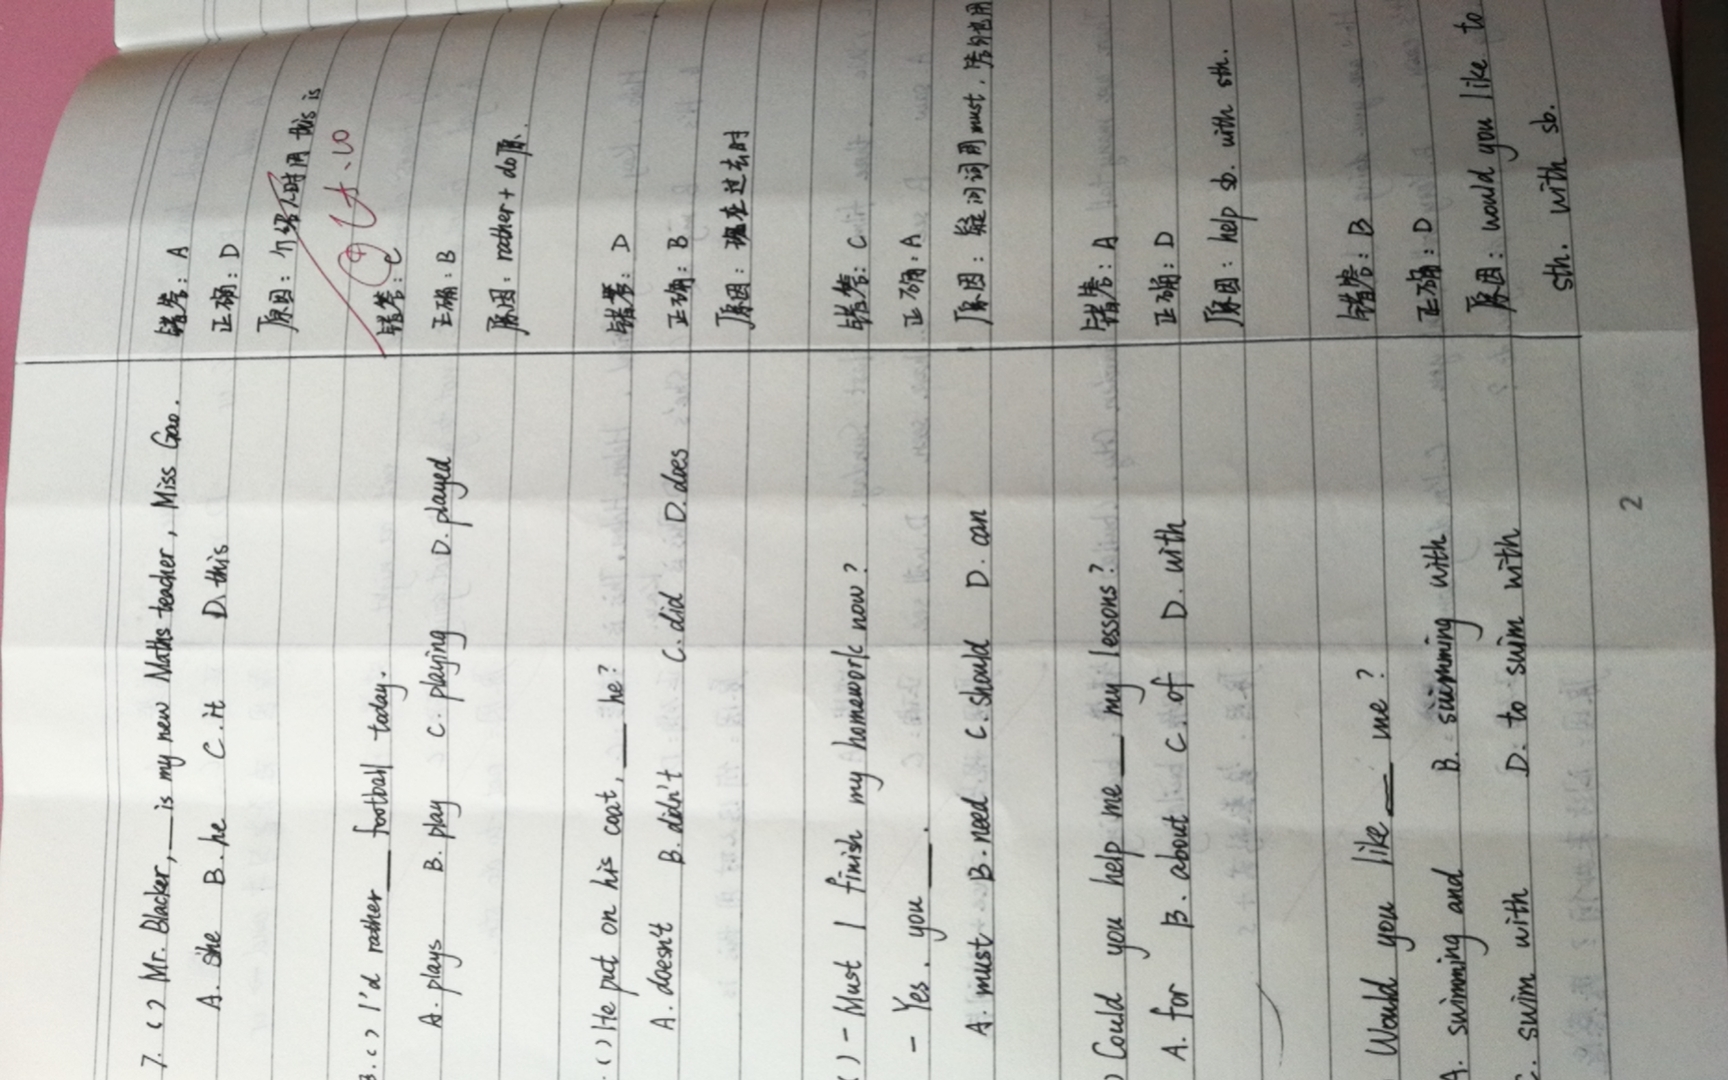 7. ( ) Mr. Blacker, __ is my new Maths teacher, Miss Gao.
A. she B. he C. it D. this
错答: A
正确: D
原因: 介绍人时用 this is
3. ( ) I'd rather __ football today.
A. plays B. play C. playing D. played
错答: C
正确: B
原因: rather + do原.
( ) He put on his coat, __ he?
A. doesn't B. didn't C. did D. does
错答: D
正确: B
原因: 现在过去时
( ) - Must I finish my homework now?
- Yes, you __.
A. must B. need C. should D. can
错答: C
正确: A
原因: 疑问词用must, 答
) Could you help me __ my lessons?
A. for B. about C. of D. with
错答: A
正确: D
原因: help sb. with sth.
Would you like __ me?
A. swimming and B. swimming with
C. swim with D. to swim with
错答: B
正确: D
原因: would you like to
sth. with sb.
2